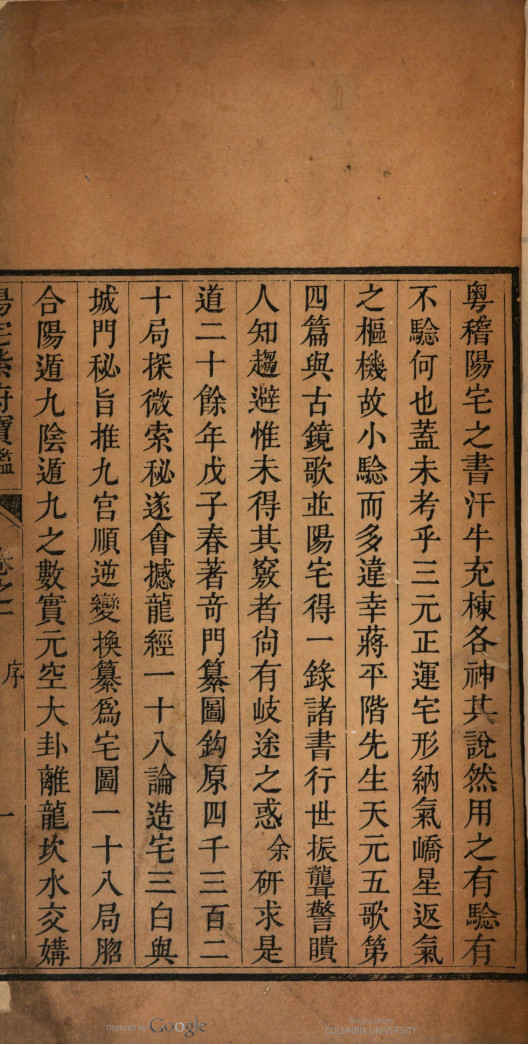 粤稽陽宅之書汗牛充棟各神其說然用之有驗有
不驗何也蓋未考乎三元正運宅形納氣嶠星返氣
之樞機故小驗而多違幸蔣平階先生天元五歌第
四篇與古鏡歌並陽宅得一錄諸書行世振聾警瞶
人知趨避惟未得其竅者尙有岐途之惑余研求是
道二十餘年戊子春著奇門纂圖鈎原四千三百二
十局探微索秘遂會撼龍經一十八論造宅三白與
城門秘旨推九宮順逆變換纂爲宅圖一十八局脗
合陽遁九陰遁九之數實元空大卦離龍坎水交媾
陽宅紫府寶鑑 卷之一 序 一
Digitized by Google
Original from
COLUMBIA UNIVERSITY